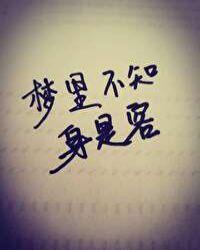 梦里不知
身是客